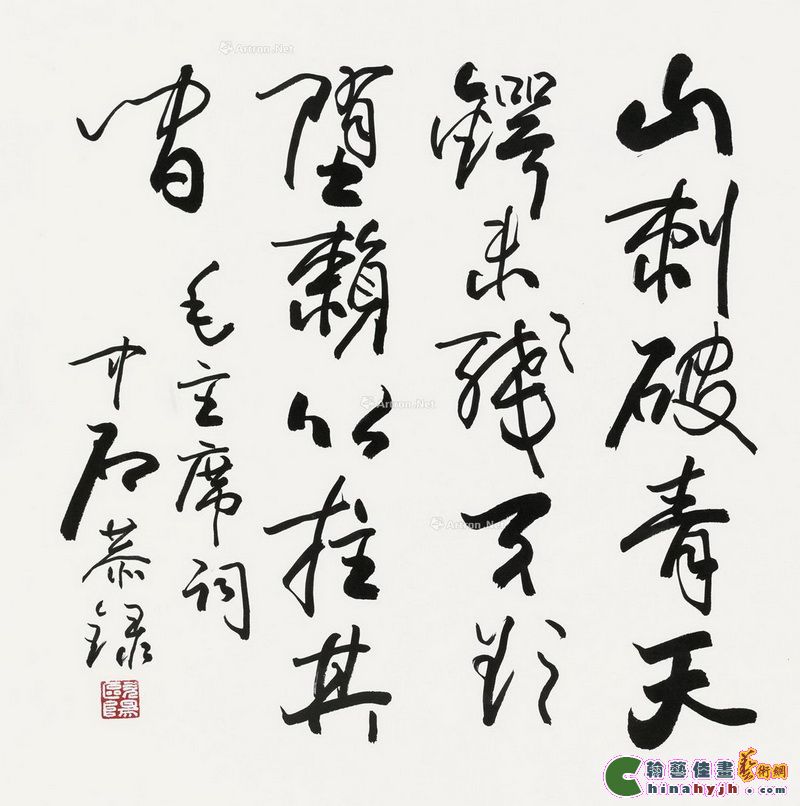 山刺破青天
鍔未殘天欲
堕賴以拄其
間
毛主席詞
中石恭録
Artron.Net
Artron.Net
Artron.Net
翰藝佳畫藝術網
Chinahyjh.com